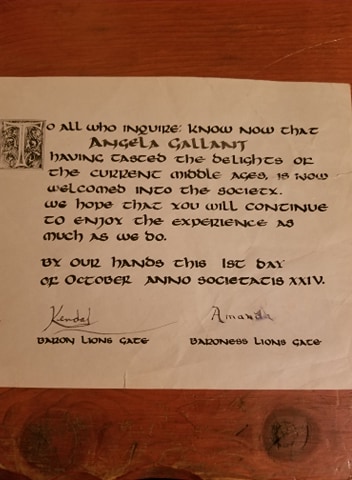 To all who inquire: know now that
Angela Gallant
having tasted the delights of
the current middle ages, is now
welcomed into the society.
we hope that you will continue
to enjoy the experience as
much as we do.
By our hands this 1st day
of October anno societatis XXIV.
Kendal Amanda
Baron Lions Gate Baroness Lions Gate